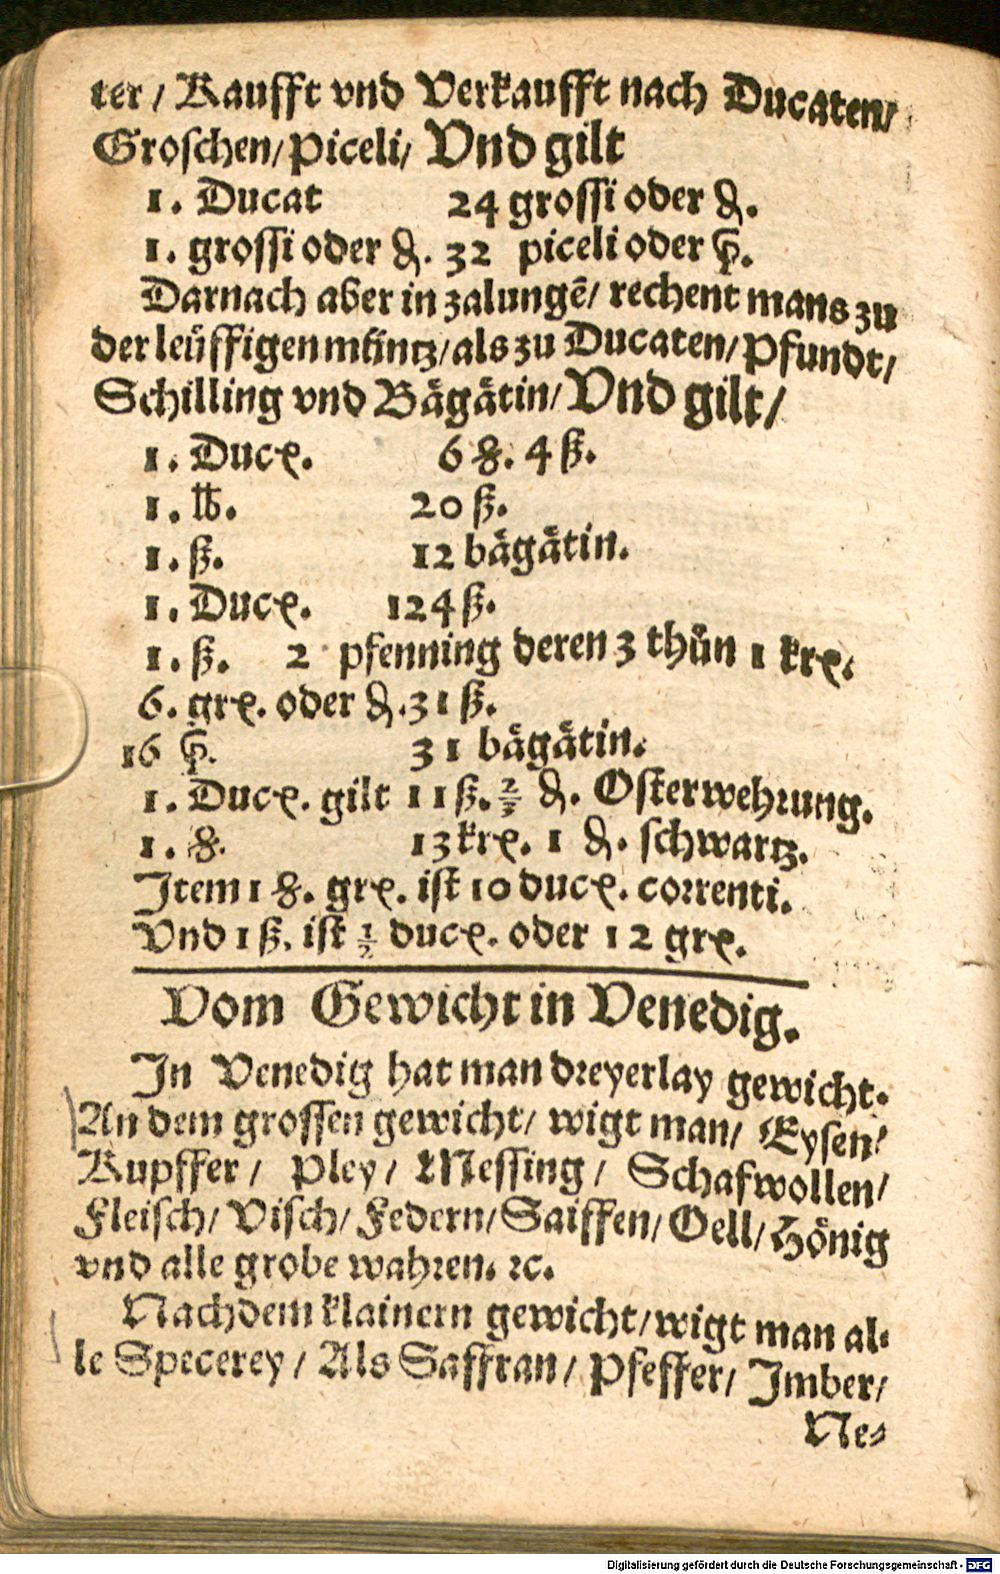 ter / Kaufft vnd Verkaufft nach Ducaten/
Groschen/ Piceli/ Vnd gilt
1. Ducat 24 grossi oder ₰.
1. grossi oder ₰. 32 piceli oder p̃.
Darnach aber in zalungẽ/ rechent mans zu
der leüffigen müntz/ als zu Ducaten/ Pfundt/
Schilling vnd Bågåtin/ Vnd gilt/
1. Ducꝝ. 6 ℔. 4 ß.
1. ℔. 20 ß.
1. ß. 12 bågåtin.
1. Ducꝝ. 124 ß.
1. ß. 2 pfenning deren 3 thůn 1 krꝝ.
6. grꝝ. oder ₰. 31 ß.
16 p̃. 31 bågåtin.
1. Ducꝝ. gilt 11 ß. 2/3 ₰. Osterwehꝛung.
1. ℔. 13 krꝝ. 1 ₰. schwartz.
Item 1 ℔. grꝝ. ist 10 ducꝝ. coꝛrenti.
Vnd 1 ß. ist 1/2 ducꝝ. oder 12 grꝝ.
Vom Gewicht in Venedig.
In Venedig hat man dꝛeyerlay gewicht.
An dem grossen gewicht/ wigt man/ Eysen/
Kupffer / Pley / Messing / Schafwollen/
Fleisch/ Visch/ Federn/ Saiffen/ Oell/ Hönig
vnd alle grobe wahꝛen. ꝛc.
Nach dem klainern gewicht/ wigt man al⸗
le Specerey / Als Saffran / Pfeffer/ Imber/
Ne⸗
Digitalisierung gefördert durch die Deutsche Forschungsgemeinschaft - DFG